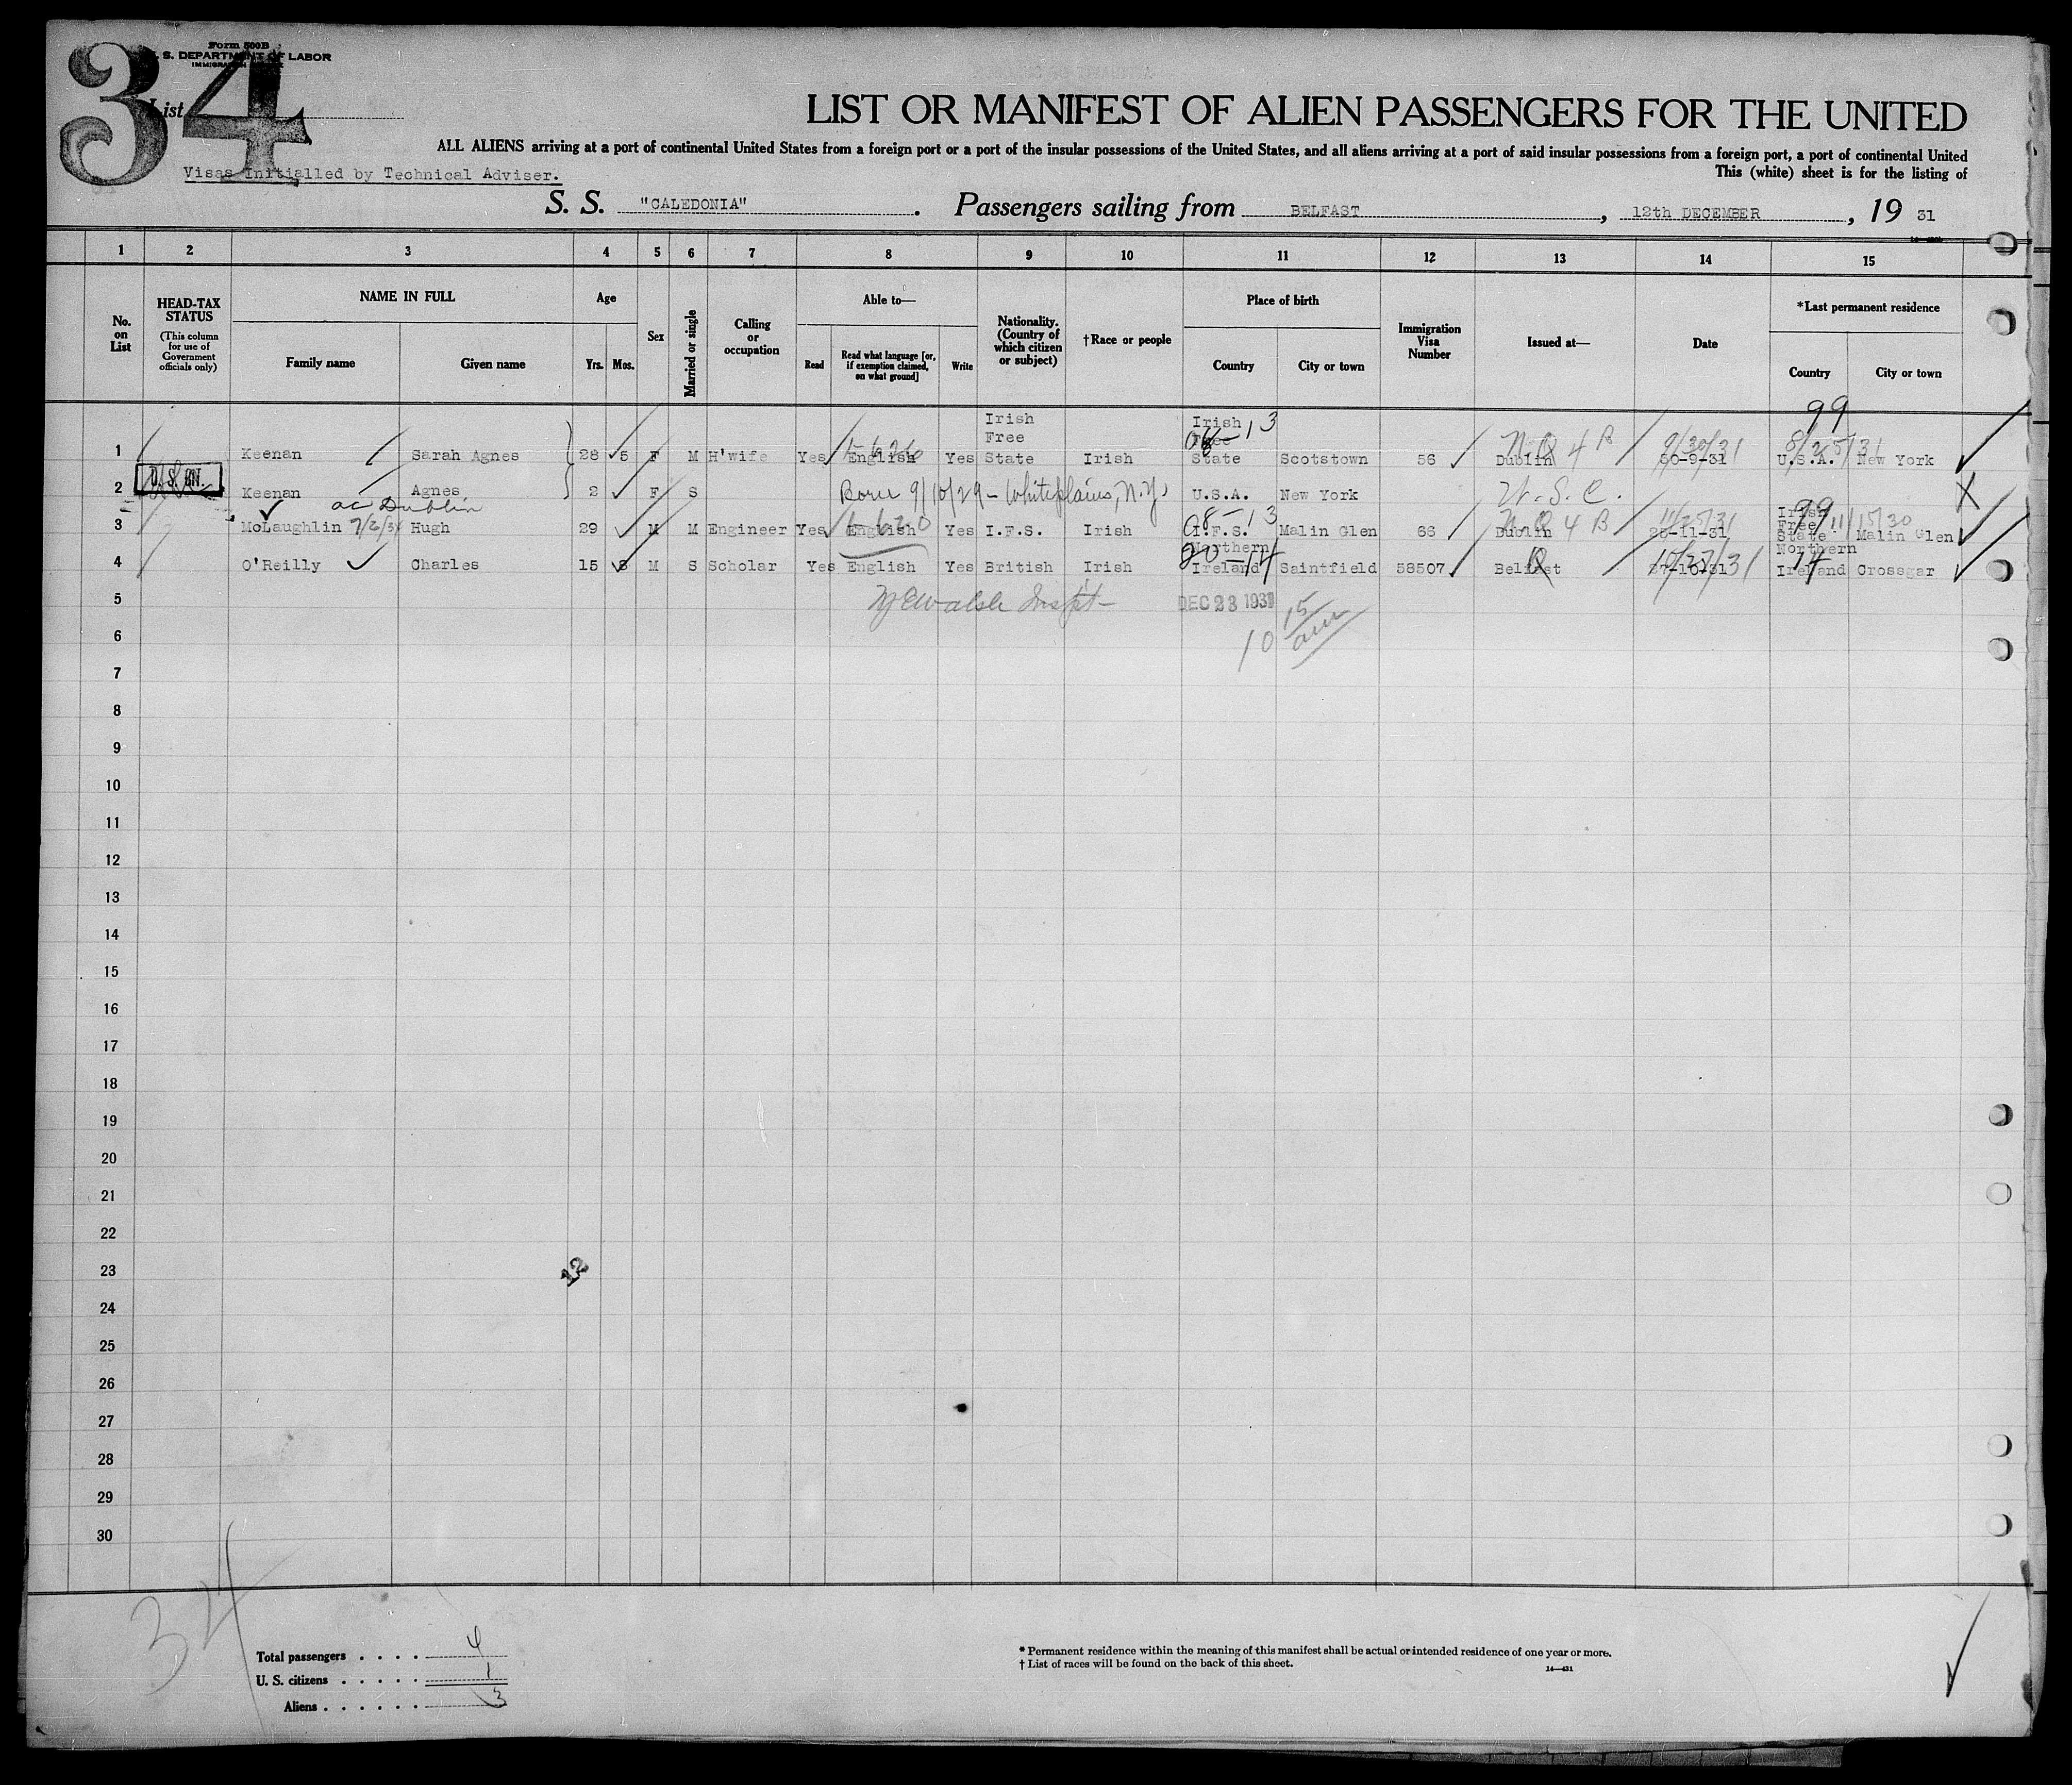 34
Form 500B
U. S. DEPARTMENT OF LABOR
List
LIST OR MANIFEST OF ALIEN PASSENGERS FOR THE UNITED
ALL ALIENS arriving at a port of continental United States from a foreign port or a port of the insular possessions of the United States, and all aliens arriving at a port of said insular possessions from a foreign port, a port of continental United
Visas Initialled by Technical Adviser.
This (white) sheet is for the listing of
S. S. "CALEDONIA". Passengers sailing from BELFAST, 12th DECEMBER, 19 31
1 2 3 4 5 6 7 8 9 10 11 12 13 14 15
No. on List
HEAD-TAX STATUS
(This column for use of Government officials only)
NAME IN FULL
Family name Given name
Age
Yrs. Mos.
Sex
Married or single
Calling or occupation
Able to—
Read Read what language [or, if exemption claimed, on what ground] Write
Nationality. (Country of which citizen or subject)
†Race or people
Place of birth
Country City or town
Immigration Visa Number
Issued at—
Date
*Last permanent residence
Country City or town
99
08-13 4 B 9/30/31 8/25/31
1 Keenan Sarah Agnes 28 5 F M H'wife Yes English Yes Irish Free State Irish Irish Free State Scotstown 56 Dublin 30-9-31 U.S.A. New York
2 Keenan Agnes 2 F S Born 9/10/29 - Whiteplains, N.Y. U.S.A. New York U.S.C. X
ac Dublin
08-13 4 B 11/25/31 99 11/15/30
3 McLaughlin 7/6/34 Hugh 29 M M Engineer Yes English Yes I.F.S. Irish I.F.S. Malin Glen 66 Dublin 25-11-31 Irish Free State Malin Glen
20-14 Q 10/27/31 14
4 O'Reilly Charles 15 8 M S Scholar Yes English Yes British Irish Northern Ireland Saintfield 58507 Belfast 27-10-31 Northern Ireland Crossgar
5 Walsh Inspt- DEC 23 1931
6 10 15 am
7
8
9
10
11
12
13
14
15
16
17
18
19
20
21
22
23 12
24
25
26
27
28
29
30
34
Total passengers . . . . 4
U. S. citizens . . . . . 1
Aliens . . . . . . 3
* Permanent residence within the meaning of this manifest shall be actual or intended residence of one year or more.
† List of races will be found on the back of this sheet.
14—431